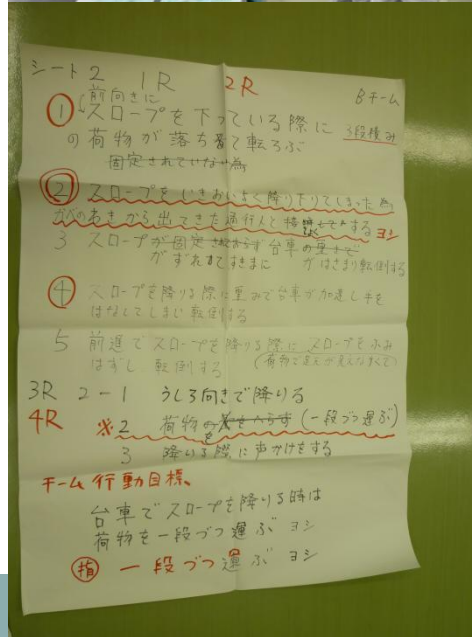 シート2 1R 2R Bチーム
前向きに
① スロープを下っている際に 3段積み
の荷物が落ち着て転ろぶ
固定されていない為
② スロープをいきおいよく降り下りてしまった為
かべのあきから出てきた通行人と する ヨシ
3 スロープが固定されておらず台車の重さで
がずれすきまに がはさまり転倒する
④ スロープを降りる際に重みで台車が加速し手を
はなしてしまい転倒する
5 前進でスロープを降りる際にスロープをふみ
はずし 転倒する (荷物で足元が見えなくて)
3R 2-1 うしろ向きで降りる
4R ※2 荷物を (一段づつ運ぶ)
3 降りる際に声かけをする
チーム行動目標。
台車でスロープを降りる時は
荷物を一段づつ運ぶ ヨシ
指 一段づつ運ぶ ヨシ